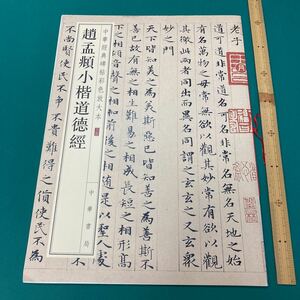 老子
道可道非常道名可名非常名無名天地之始
有名萬物之母常無欲以觀其妙常有欲以觀
其徼此兩者同出而異名同謂之玄玄之又玄衆
妙之門
天下皆知美之為美斯惡已皆知善之為善
之相生難易之相成長短之相形高
下之相傾音聲之相和前後之相隨是以聖人處
不尚賢使民不爭不貴難得之貨使民不為
中華經典碑帖彩色放大本
趙孟頫小楷道德經
中華書局